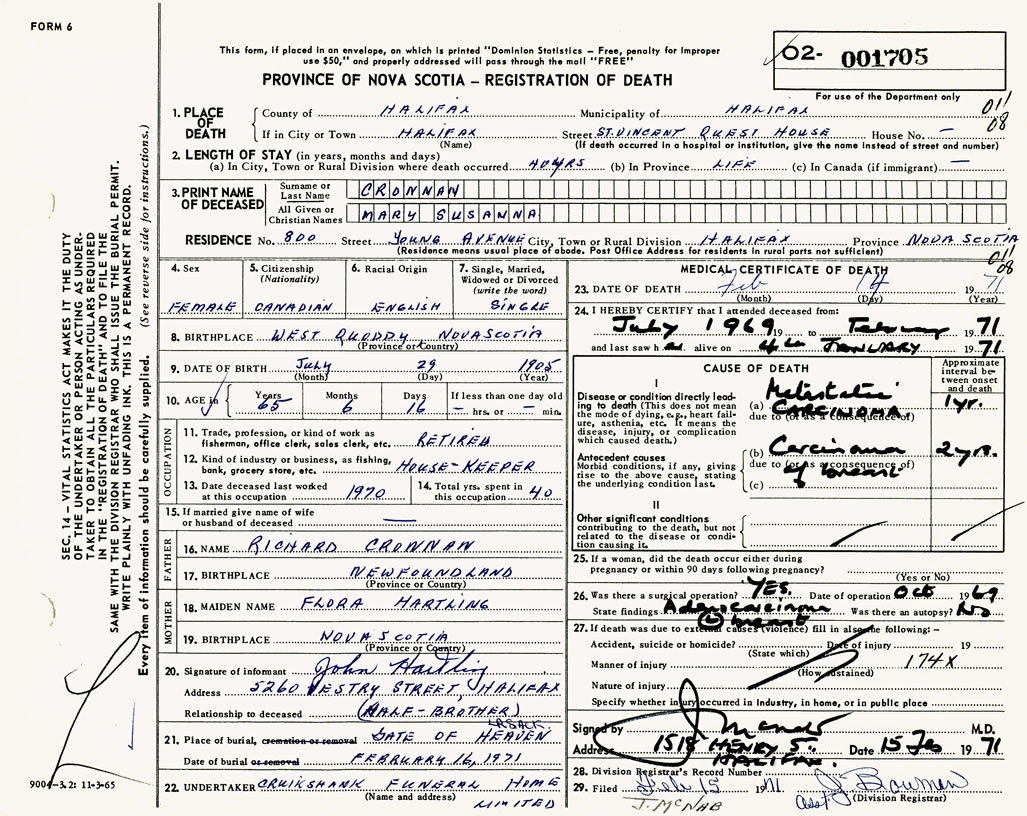 FORM 6
This form, if placed in an envelope, on which is printed "Dominion Statistics – Free, penalty for improper
use $50," and properly addressed will pass through the mail "FREE"
PROVINCE OF NOVA SCOTIA – REGISTRATION OF DEATH
02- 001705
For use of the Department only
011
08
1. PLACE OF DEATH
County of HALIFAX Municipality of HALIFAX
If in City or Town HALIFAX Street ST. VINCENT GUEST HOUSE House No. –
(Name) (If death occurred in a hospital or institution, give the name instead of street and number)
2. LENGTH OF STAY (in years, months and days)
(a) In City, Town or Rural Division where death occurred 40 YRS (b) In Province LIFE (c) In Canada (if immigrant) –
3. PRINT NAME OF DECEASED
Surname or Last Name CRONNAN
All Given or Christian Names MARY SUSANNA
RESIDENCE No. 800 Street YOUNG AVENUE City, Town or Rural Division HALIFAX Province NOVA SCOTIA
(Residence means usual place of abode. Post Office Address for residents in rural parts not sufficient)
011
08
4. Sex
FEMALE
5. Citizenship
(Nationality)
CANADIAN
6. Racial Origin
ENGLISH
7. Single, Married,
Widowed or Divorced
(write the word)
SINGLE
8. BIRTHPLACE WEST QUODDY NOVA SCOTIA
(Province or Country)
9. DATE OF BIRTH July 29 1905
(Month) (Day) (Year)
10. AGE in
Years Months Days If less than one day old
65 6 16 – hrs. or – min.
OCCUPATION
11. Trade, profession, or kind of work as
fisherman, office clerk, sales clerk, etc. RETIRED
12. Kind of industry or business, as fishing,
bank, grocery store, etc. HOUSE-KEEPER
13. Date deceased last worked
at this occupation 1970
14. Total yrs. spent in
this occupation 40
15. If married give name of wife
or husband of deceased —
FATHER
16. NAME RICHARD CRONNAN
17. BIRTHPLACE NEWFOUNDLAND
(Province or Country)
MOTHER
18. MAIDEN NAME FLORA HARTLING
19. BIRTHPLACE NOVA SCOTIA
(Province or Country)
20. Signature of informant John Hartling
Address 5260 VESTRY STREET, HALIFAX
Relationship to deceased (HALF-BROTHER)
21. Place of burial, cremation or removal GATE OF HEAVEN
Date of burial or removal FEBRUARY 16, 1971
22. UNDERTAKER CRUIKSHANK FUNERAL HOME
(Name and address) LIMITED
MEDICAL CERTIFICATE OF DEATH
23. DATE OF DEATH Feb 14 1971
(Month) (Day) (Year)
24. I HEREBY CERTIFY that I attended deceased from:
July 1969 19 to February 1971
and last saw her alive on 4th JANUARY 1971
CAUSE OF DEATH
Approximate
interval be-
tween onset
and death
I
Disease or condition directly lead-
ing to death (This does not mean
the mode of dying, e.g., heart fail-
ure, asthenia, etc. It means the
disease, injury, or complication
which caused death.)
(a) Metastatic CARCINOMA 1 yr.
due to (or as a consequence of)
Antecedent causes
Morbid conditions, if any, giving
rise to the above cause, stating
the underlying condition last.
(b) Carcinoma 2 yrs.
due to (or as a consequence of)
of breast
(c)
II
Other significant conditions
contributing to the death, but not
related to the disease or condi-
tion causing it.
25. If a woman, did the death occur either during
pregnancy or within 90 days following pregnancy?
(Yes or No)
26. Was there a surgical operation? YES. Date of operation Oct 1969
State findings Adenocarcinoma Was there an autopsy? No
breast
27. If death was due to external causes (violence) fill in also the following: –
Accident, suicide or homicide? Date of injury 19
(State which)
Manner of injury 174X
(How sustained)
Nature of injury
Specify whether injury occurred in Industry, in home, or in public place
Signed by M.D.
Address 1518 HENRY ST. Date 15 Feb 1971
HALIFAX.
28. Division Registrar's Record Number
29. Filed Feb 15 1971 Asst. J. Bowman
(Division Registrar)
J. MCNAB
SEC. 14 – VITAL STATISTICS ACT MAKES IT THE DUTY
OF THE UNDERTAKER OR PERSON ACTING AS UNDER-
TAKER TO OBTAIN ALL THE PARTICULARS REQUIRED
IN THE "REGISTRATION OF DEATH" AND TO FILE THE
SAME WITH THE DIVISION REGISTRAR WHO SHALL ISSUE THE BURIAL PERMIT.
WRITE PLAINLY WITH UNFADING INK. THIS IS A PERMANENT RECORD.
Every item of information should be carefully supplied. (See reverse side for instructions.)
9004–3.2: 11-3-65